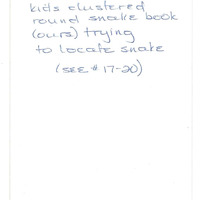 kids clustered
round snake book
(ours) trying
to locate snake
(SEE # 17-20)